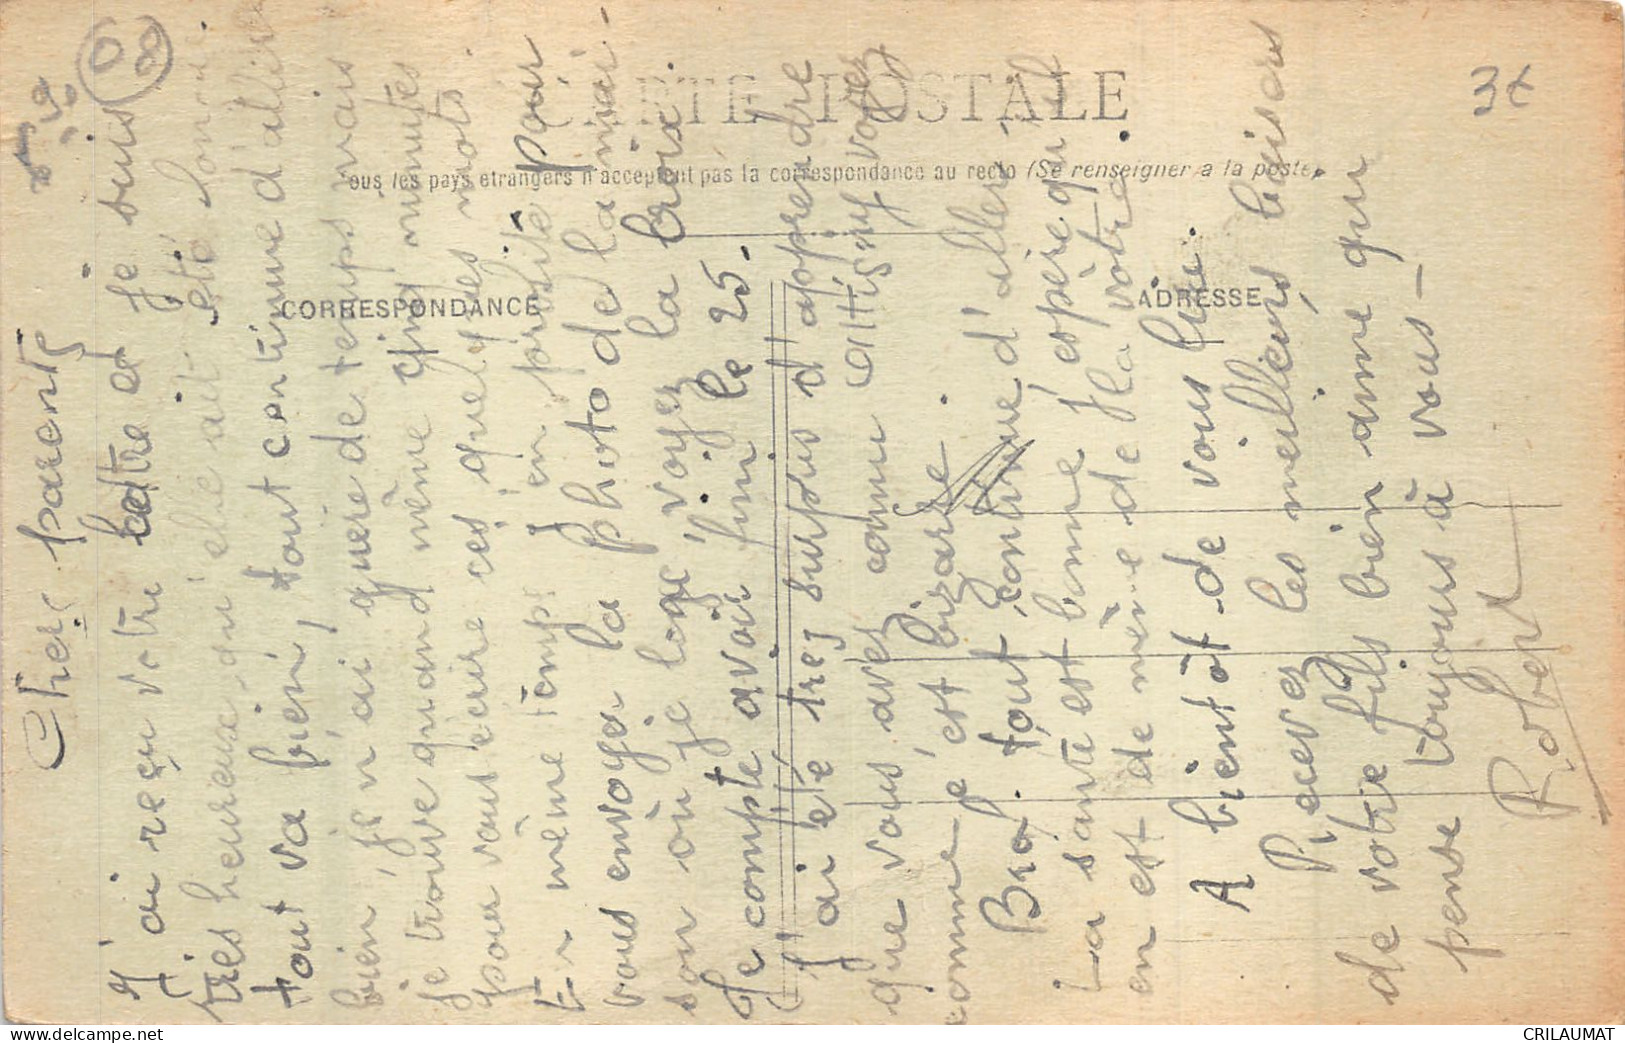 CARTE POSTALE
Tous les pays étrangers n'acceptent pas la correspondance au recto (Se renseigner à la poste)
CORRESPONDANCE
ADRESSE
3x
Chers parents
J'ai reçu votre lettre et je suis
très heureux qu'elle ait été
tout va bien, tout continue d'aller
bien, je n'ai guère de temps mais
je trouve quand même cinq minutes
pour vous écrire ces quelques mots.
En même temps j'en profite pour
vous envoyer la photo de la mai-
son où je loge voyez la croix.
Je compte avoir fini le 25.
J'ai été très surpris d'apprendre
que vous avez connu voyez
comme c'est bizarre.
Bref. tout continue d'aller
La santé est bonne j'espère qu'il
en est de même de la votre.
A bientôt de vous lire.
Recevez les meilleurs baisers
de votre fils bien aimé qui
pense toujours à vous —
Robert
CRILAUMAT
delcampe.net